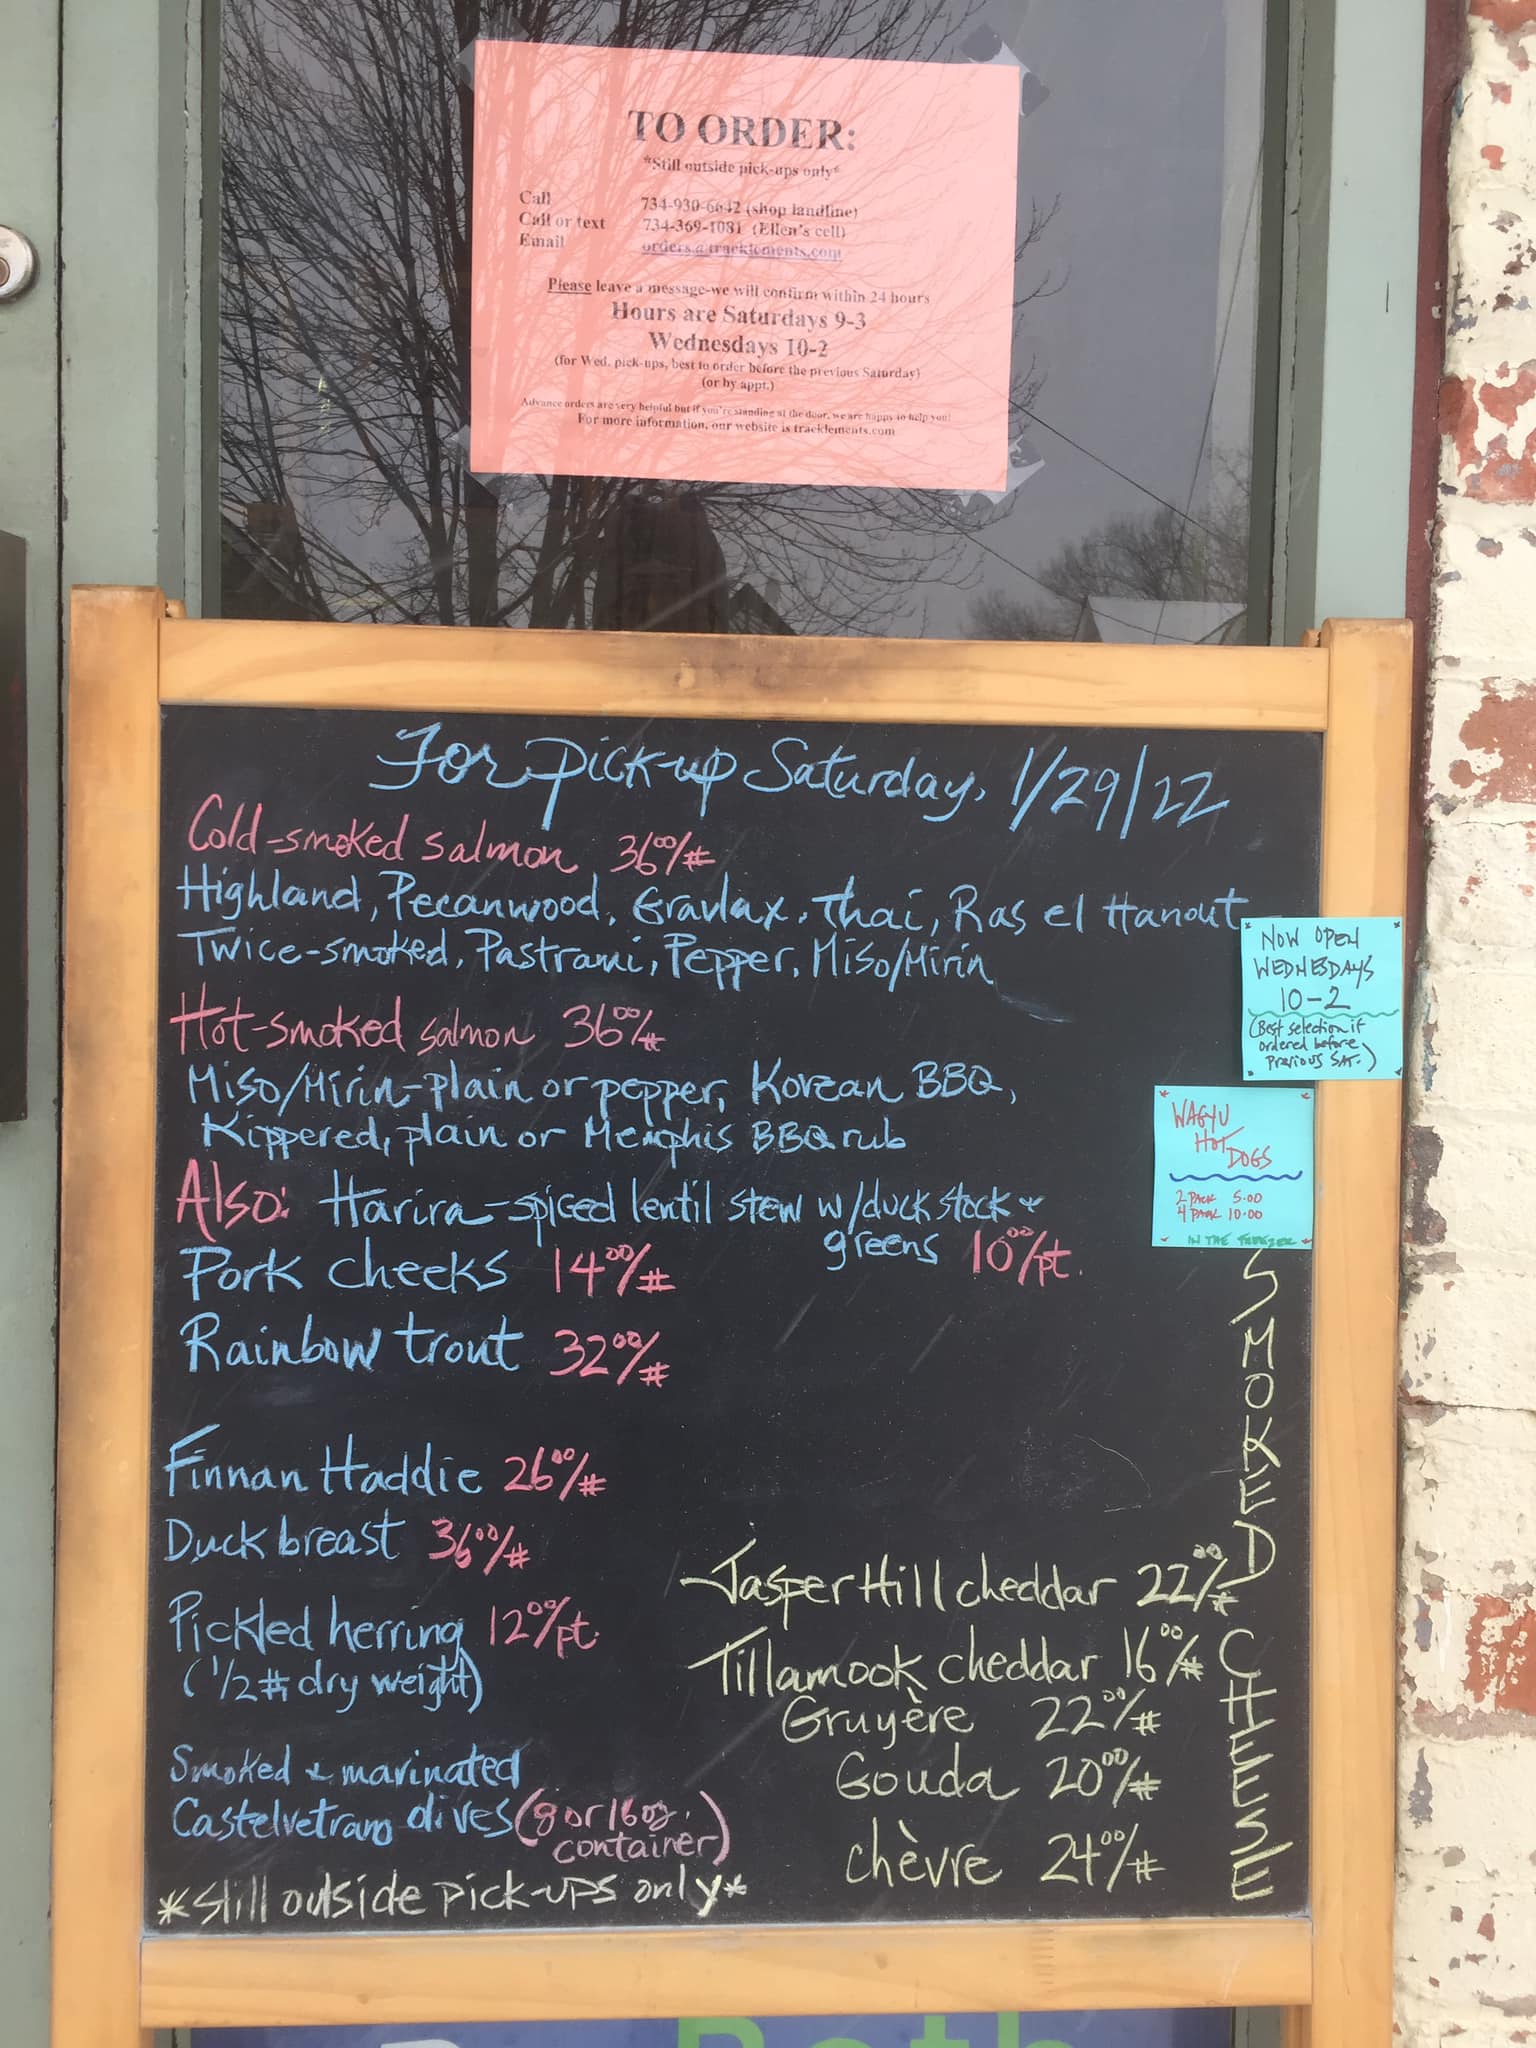 TO ORDER:
*Still outside pick-ups only*
Call 734-930-6642 (shop landline)
Call or text 734-369-1081 (Ellen's cell)
Email orders@tracklements.com
Please leave a message-we will confirm within 24 hours
Hours are Saturdays 9-3
Wednesdays 10-2
(for Wed. pick-ups, best to order before the previous Saturday)
(or by appt.)
Advance orders are very helpful but if you're standing at the door, we are happy to help you!
For more information, our website is tracklements.com
For pick-up Saturday, 1/29/22
Cold-smoked salmon 36⁰⁰/#
Highland, Pecanwood, Gravlax, Thai, Ras el Hanout
Twice-smoked, Pastrami, Pepper, Miso/Mirin
Hot-smoked salmon 36⁰⁰/#
Miso/Mirin-plain or pepper, Korean BBQ,
Kippered, plain or Memphis BBQ rub
Also: Harira-spiced lentil stew w/duck stock +
greens 10⁰⁰/pt.
Pork cheeks 14⁰⁰/#
Rainbow trout 32⁰⁰/#
Finnan Haddie 26⁰⁰/#
Duck breast 36⁰⁰/#
Pickled herring 12⁰⁰/pt.
(1/2 #, dry weight)
Smoked + marinated
Castelvetrano olives (8 or 16 oz.
container)
*Still outside pick-ups only*
NOW OPEN
WEDNESDAYS
10-2
(Best selection if
ordered before
previous SAT.)
WAGYU
HOT
DOGS
2 PACK 5.00
4 PACK 10.00
IN THE FREEZER
SMOKED CHEESE
Jasper Hill cheddar 22⁰⁰/#
Tillamook cheddar 16⁰⁰/#
Gruyère 22⁰⁰/#
Gouda 20⁰⁰/#
chèvre 24⁰⁰/#